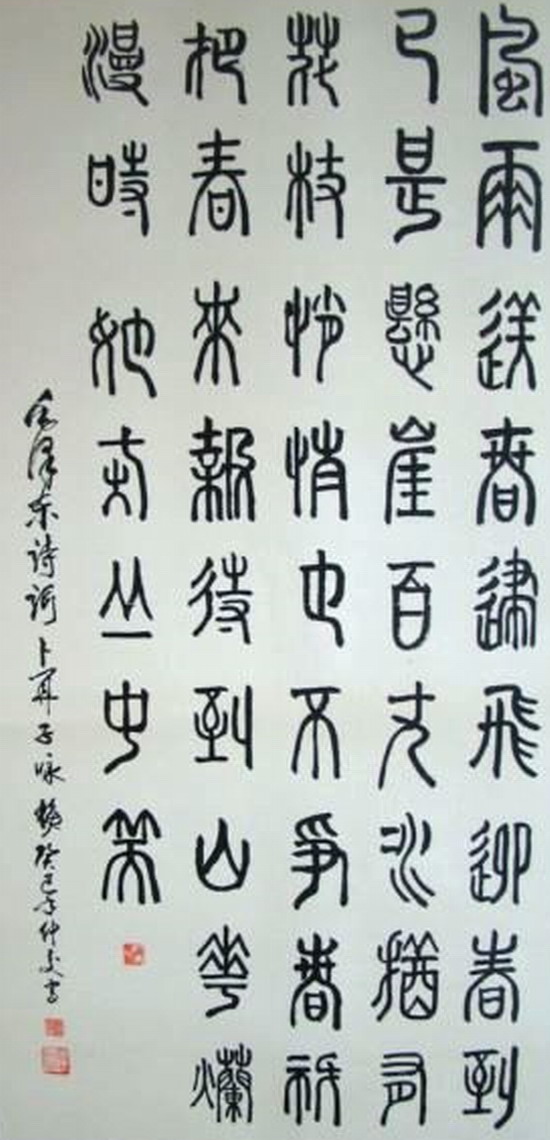 風雨送春歸飛迎春到
已是懸崖百丈冰猶有
花枝俏俏也不爭春祇
把春來報待到山華爛
漫時她在丛中笑
毛泽东诗词卜算子咏梅癸巳年仲书